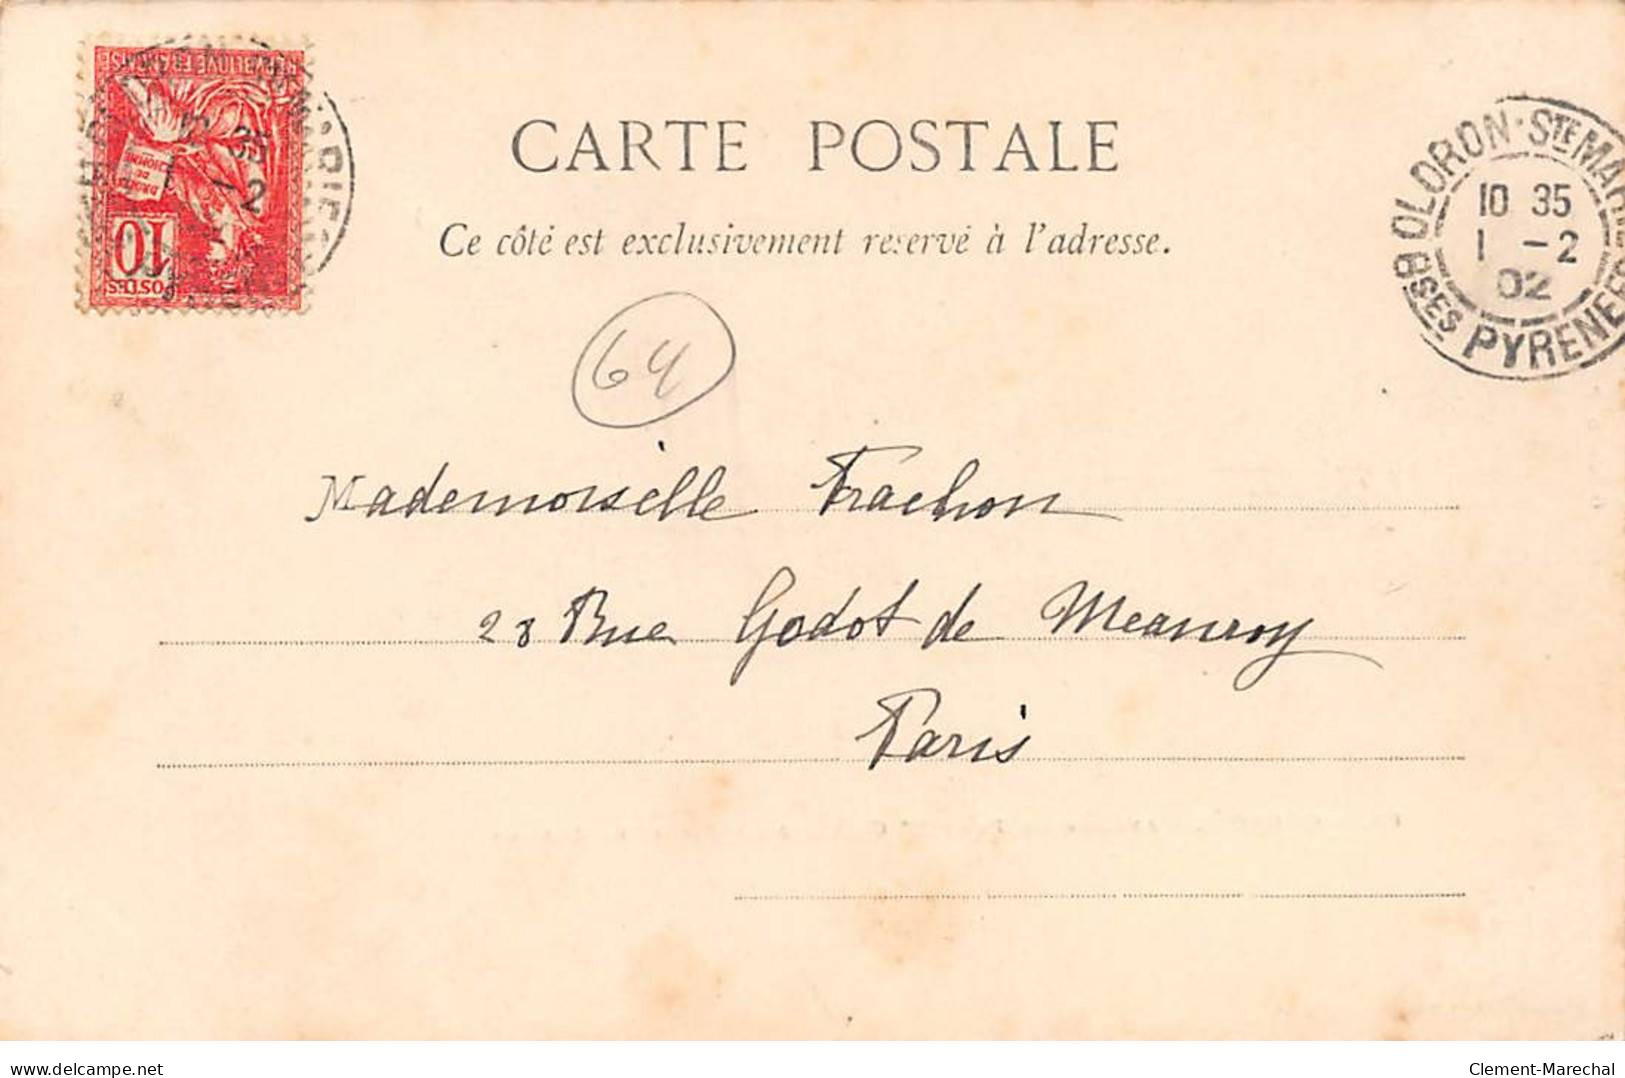 REPUBLIQUE FRANÇAISE
DROITS
DE
L'HOMME
10
POSTES
10 35
1 -2
CARTE POSTALE
Ce côté est exclusivement reservé à l'adresse.
OLORON-STE MARIE
10 35
1 -2
02
BSES PYRENEES
64
Mademoiselle Frachon
28 Rue Godot de Meauroy
Paris
delcampe.net
Clement-Marechal